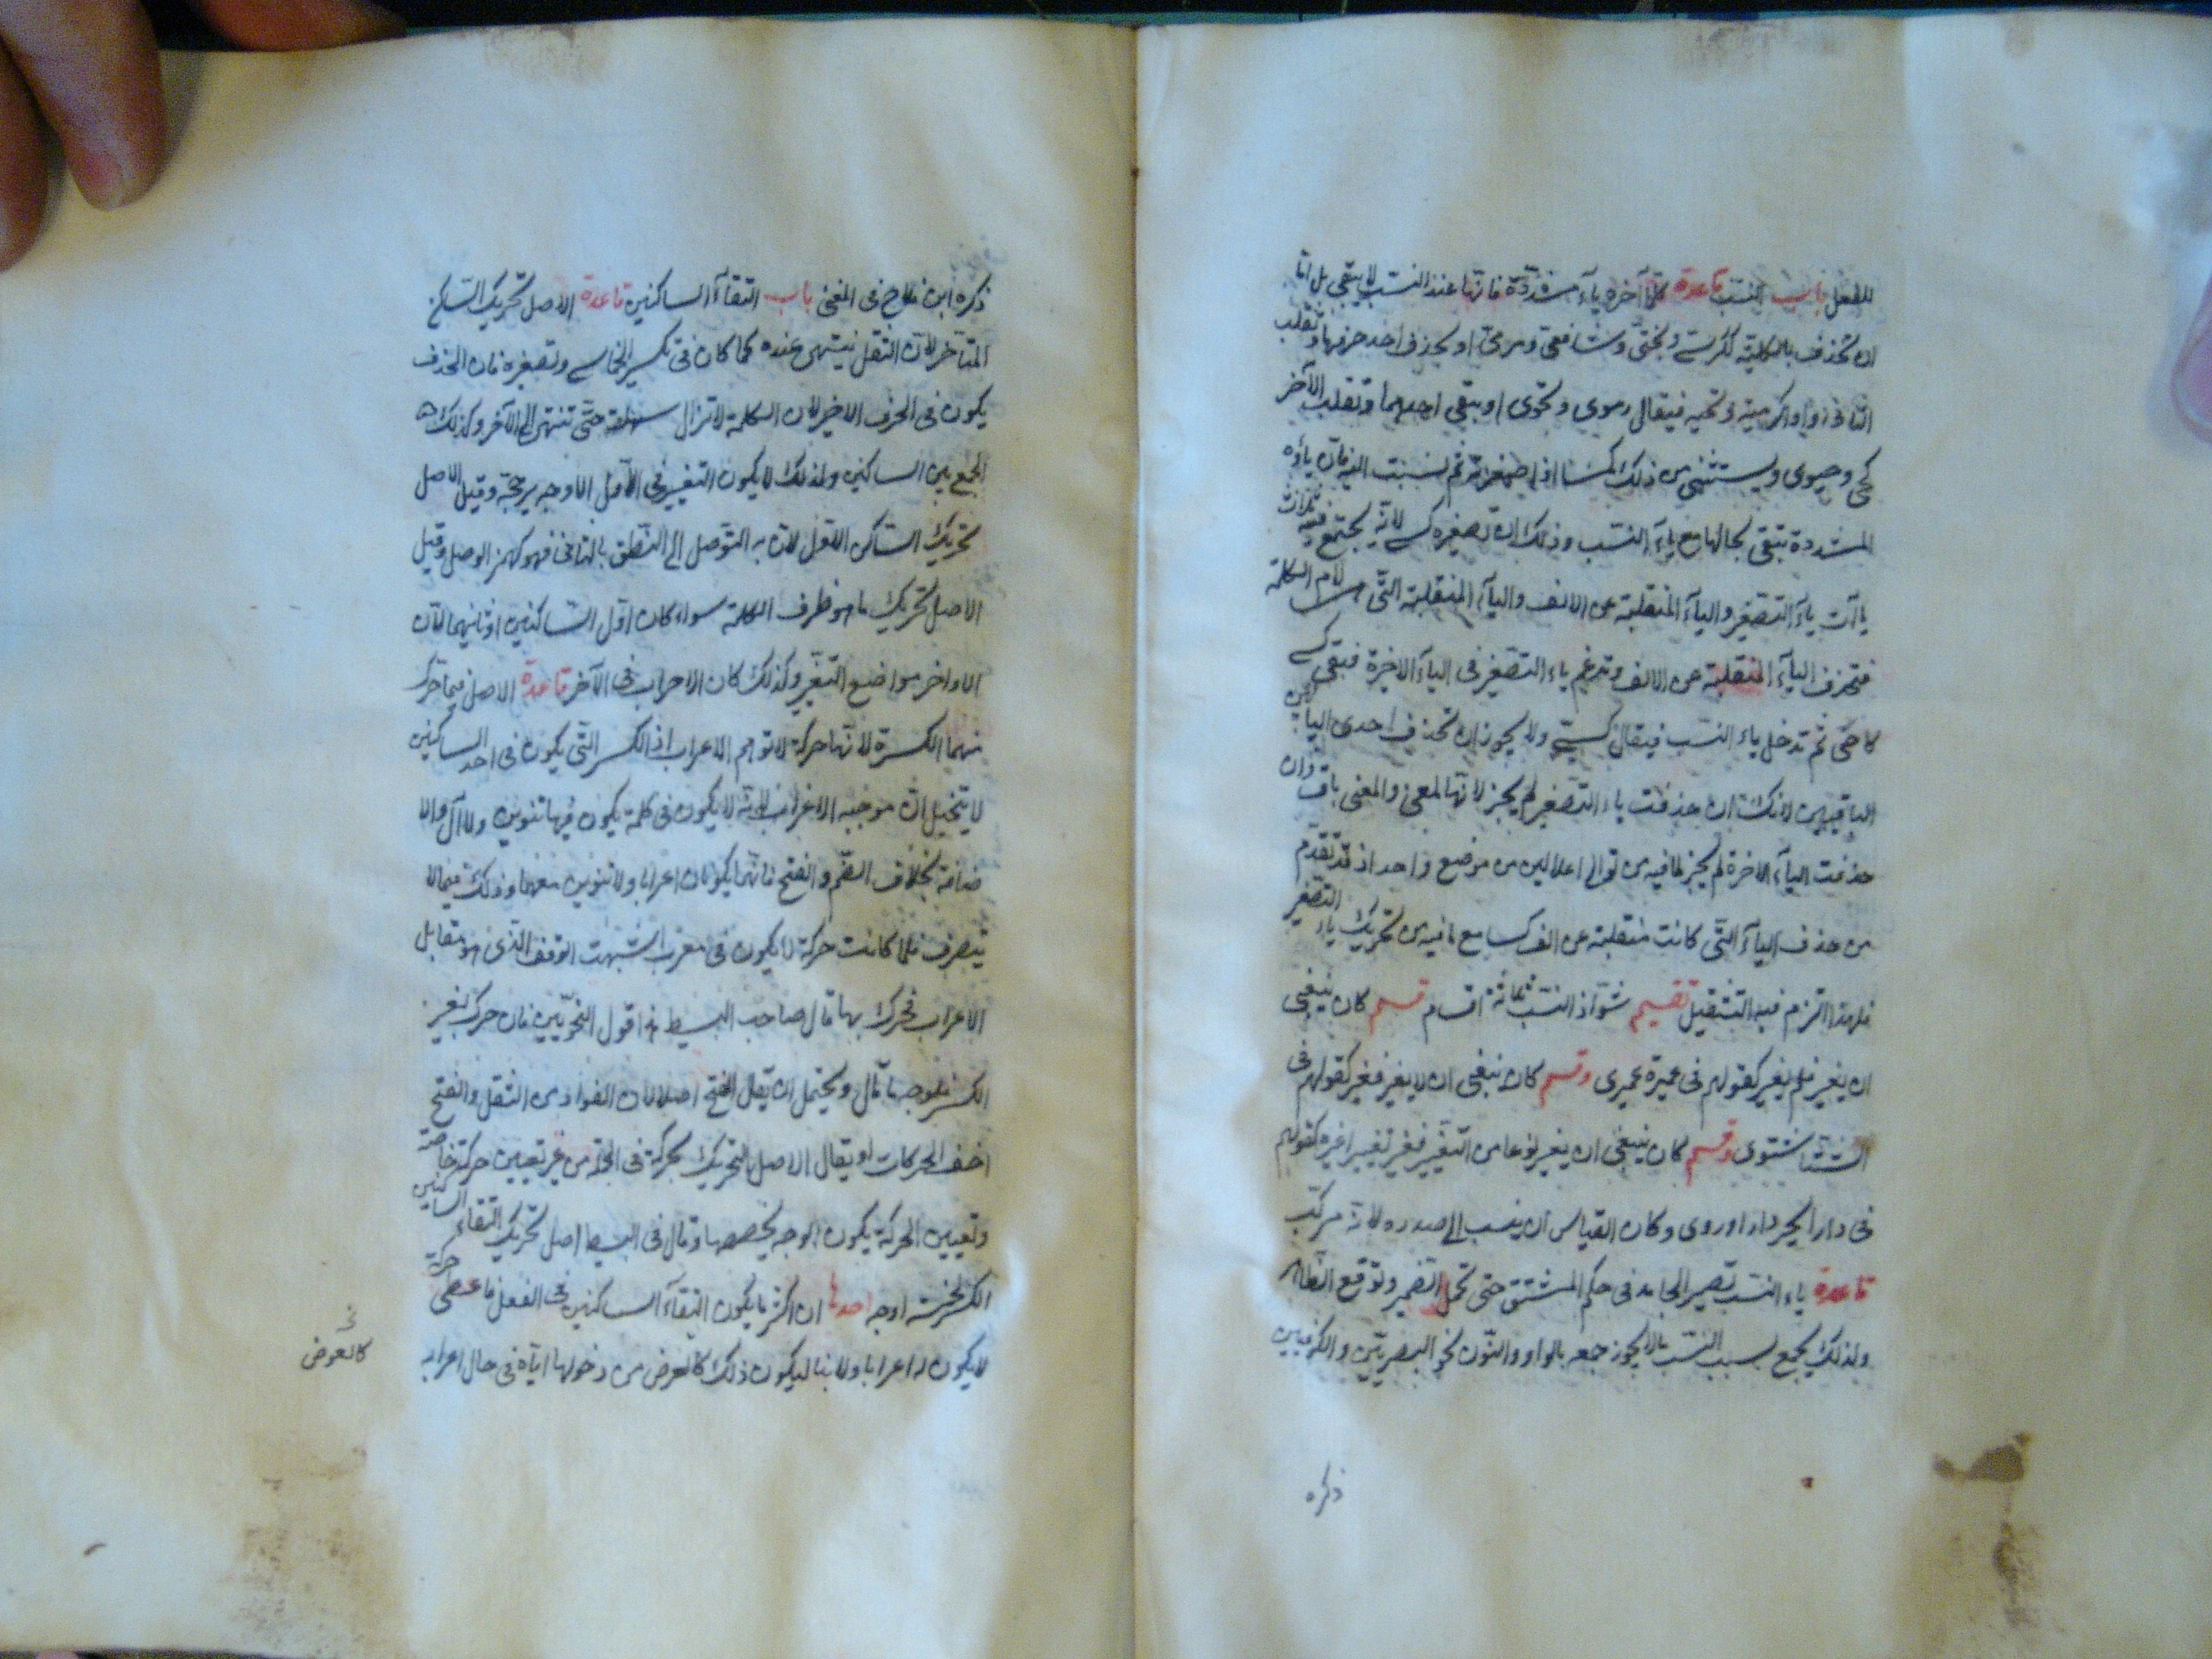 للفعل باب النسب قاعدة كلما آخره ياء مشددة فانها عند النسب لا يبقى بل اما
ان تحذف بالكلية ككرسي وبختي وشافعي ومرمى او يحذف احد حرفيها وتقلب
الثانى واوا كرمية وتحية فيقال رموى وتحوى او يبقى احدهما وتقلب الآخر
كحى وحيوى ويستثنى من ذلك كسا اذا صغرته ثم نسبت اليه فان ياؤه
المشددة تبقى بحالها مع ياء النسب وذلك ان تصغيره كسي لانه يجتمع فيه ثلاث
ياآت ياء التصغير والياء المنقلبة عن الالف والياء المنقلبة التى هي لام الكلمة
فتحذف الياء المنقلبة عن الالف وتدغم ياء التصغير فى الياء الاخيرة فبقى كسي
كاخى ثم تدخل ياء النسب فيقال كسيي ولا يجوز ان تحذف احدى اليائين
الباقيين لانك ان حذفت ياء التصغير لم يجز لانها لمعنى والمعنى باق وان
حذفت الياء الاخرة لم يجز لما فيه من توالى اعلالين من موضع واحد اذ قد تقدم
من حذف الياء التى كانت منقلبة عن الف كسا مع ما فيه من تحريك ياء التصغير
فلهذا التزم فيه التثقيل تقسيم شواذ النسب ثلاثة اقسام قسم كان ينبغى
ان يغير فلم يغير كقولهم فى عميرة عميرى وقسم كان ينبغى ان لا يغير فغير كقولهم فى
الشتا شتوى وقسم كان ينبغى ان يغير نوعا من التغيير فغير تغييرا غيره كقولهم
فى دارابجرد داراوردى وكان القياس ان ينسب الى صدره لانه مركب
قاعدة ياء النسب تصير الجامد فى حكم المشتق حتى تحمل الضمير وترفع الظاهر
ولذلك يجمع بسبب النسب ما لا يجوز جمعه بالواو والنون نحو البصريين والكوفيين
ذكره
ذكره ابن فلاح فى المغنى باب التقاء الساكنين قاعدة الاصل تحريك الساكن
المتأخر لان الثقل ينتهى عنده كما كان فى تكسير الخماسى وتصغيره فان الحذف
يكون فى الحرف الاخير لان الكلمة لا تزال سهلة حتى تنتهى الى الآخر وكذلك
الجمع بين الساكنين ولذلك لا يكون التغيير فى الاول الا لوجه يرجحه وقيل الاصل
تحريك الساكن الاول لان به التوصل الى النطق بالثانى فهو كهمز الوصل وقيل
الاصل تحريك ما هو طرف الكلمة سواء كان اول الساكنين او ثانيهما لان
الاواخر مواضع التغيير وكذلك كان الاعراب فى الآخر قاعدة الاصل فيما حرك
منهما الكسرة لانها حركة لا توهم الاعراب اذ الكسر التى يكون فى احد الساكنين
لا يتخيل ان موجبه الاعراب لانه لا يكون فى كلمة يكون فيها تنوين ولا آل ولا
ضافة بخلاف الضم والفتح فانهما يكونان اعرابا ولا تنوين معهما وذلك فيما لا
ينصرف فلما كانت حركة لا يكون فى معرب اشبهت الوقف الذى هو مقابل
الاعراب فحرك بها قال صاحب البسيط هذا قول النحويين فان حرك بغير
الكسر فلوجه ما قال ويحتمل ان يقال الفتح اصلا لان الفرار من الثقل والفتح
اخف الحركات او يقال الاصل التحريك بحركة فى الجملة من غير تعيين حركة خاصة
وتعيين الحركة يكون لوجه يخصصها وقال فى البسيط اصل تحريك التقاء الساكنين
الكسر لخمسة اوجه احدها ان اكثر ما يكون التقاء الساكنين فى الفعل فاعطى حركة
لا يكون له اعرابا ولا بنا ليكون ذلك كالعوض من دخولها اياه فى حال اعرابه
كالعوض